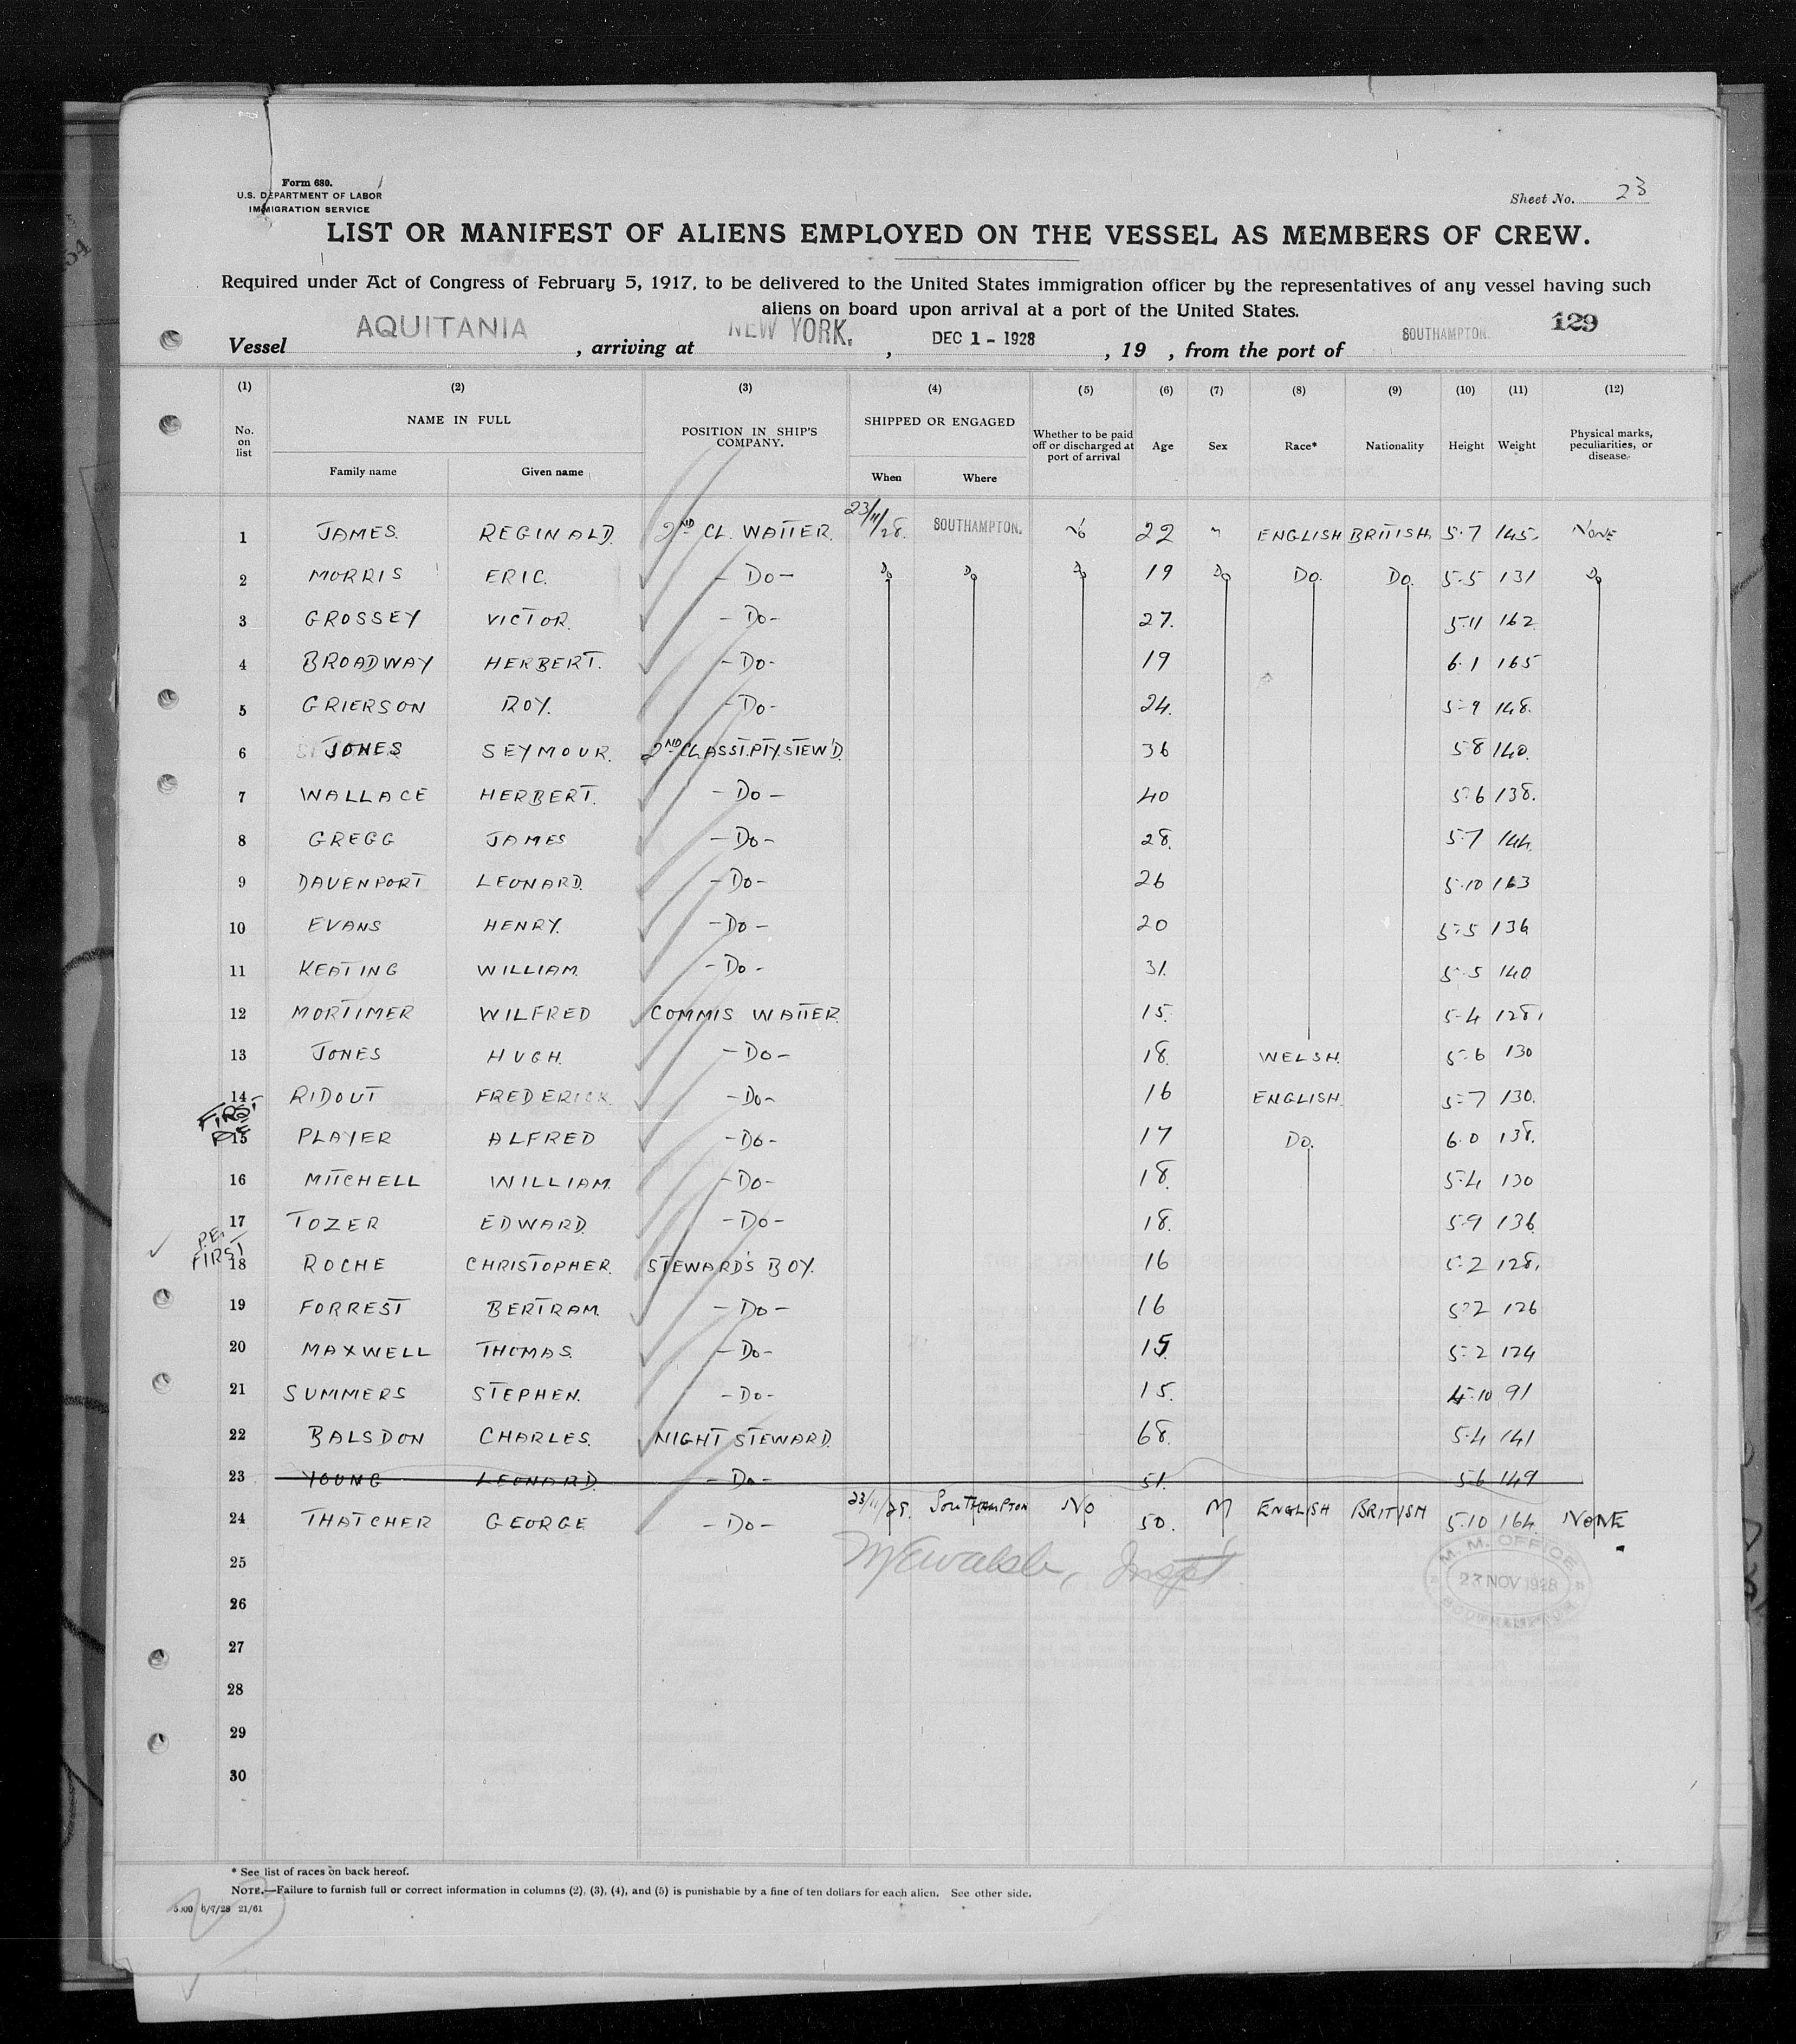 Form 680.
U.S. DEPARTMENT OF LABOR
IMMIGRATION SERVICE
Sheet No. 23
LIST OR MANIFEST OF ALIENS EMPLOYED ON THE VESSEL AS MEMBERS OF CREW.
Required under Act of Congress of February 5, 1917, to be delivered to the United States immigration officer by the representatives of any vessel having such
aliens on board upon arrival at a port of the United States.
129
Vessel AQUITANIA, arriving at NEW YORK., DEC 1 - 1928, 19 , from the port of SOUTHAMPTON.
(1) (2) (3) (4) (5) (6) (7) (8) (9) (10) (11) (12)
No. on list NAME IN FULL Family name Given name POSITION IN SHIP'S COMPANY. SHIPPED OR ENGAGED When Where Whether to be paid off or discharged at port of arrival Age Sex Race* Nationality Height Weight Physical marks, peculiarities, or disease.
1 JAMES. REGINALD. 2ND CL. WAITER. 23/11/28. SOUTHAMPTON. No 22 M ENGLISH BRITISH. 5·7 145. NONE
2 MORRIS ERIC. - Do - Do Do Do 19 Do Do. Do. 5·5 131 Do
3 GROSSEY VICTOR. - Do - 27. 5·11 162
4 BROADWAY HERBERT. - Do - 19 6·1 165
5 GRIERSON ROY. - Do - 24. 5·9 148.
6 JONES SEYMOUR. 2ND CL ASST. PTY. STEW'D. 36 5·8 140.
7 WALLACE HERBERT. - Do - 40 5·6 138.
8 GREGG JAMES - Do - 28. 5·7 144.
9 DAVENPORT LEONARD. - Do - 26 5·10 163
10 EVANS HENRY. - Do - 20 5·5 136
11 KEATING WILLIAM. - Do - 31. 5·5 140
12 MORTIMER WILFRED COMMIS WAITER. 15. 5·4 128.
13 JONES HUGH. - Do - 18. WELSH. 5·6 130
14 RIDOUT FREDERICK. - Do - 16 ENGLISH. 5·7 130.
FIRST
15 PLAYER ALFRED - Do - 17 Do. 6·0 138.
16 MITCHELL WILLIAM. - Do - 18. 5·4 130
17 TOZER EDWARD. - Do - 18. 5·9 136
P.E.
FIRST
18 ROCHE CHRISTOPHER. STEWARD'S BOY. 16 5·2 128.
19 FORREST BERTRAM. - Do - 16 5·2 126
20 MAXWELL THOMAS. - Do - 15. 5·2 124
21 SUMMERS STEPHEN. - Do - 15. 4·10 91
22 BALSDON CHARLES. NIGHT STEWARD. 68. 5·4 141
23 YOUNG LEONARD. - Do - 51. 5·6 149
24 THATCHER GEORGE - Do - 23/11/28. SOUTHAMPTON NO 50. M ENGLISH BRITISH 5·10 164. NONE
25
M. M. OFFICE
27 NOV 1928
SOUTHAMPTON
26
27
28
29
30
* See list of races on back hereof.
NOTE.—Failure to furnish full or correct information in columns (2), (3), (4), and (5) is punishable by a fine of ten dollars for each alien. See other side.
5000 6/7/28 21/61